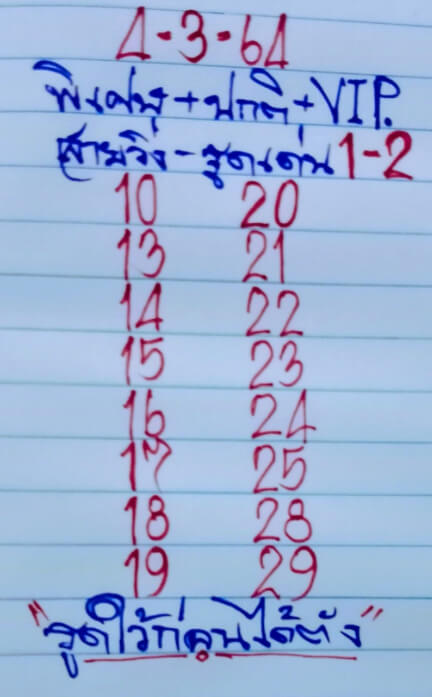 4-3-64
พิเศษ+ปกติ+VIP.
สายวิ่ง-รูดเด่น 1-2
10 20
13 21
14 22
15 23
16 24
17 25
18 28
19 29
"รูดไว้ก่อนได้ตัง"